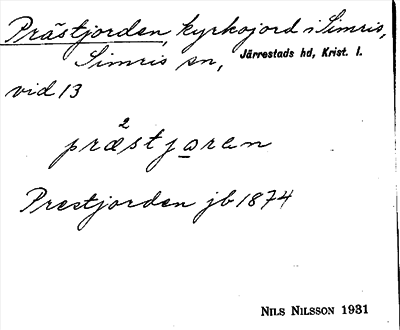 Prästjorden, kyrkojord i Simris,
Simris sn, Järrestads hd, Krist. l.
vid 13
2
præstjo̲ran
Prestjorden jb 1874
NILS NILSSON 1931